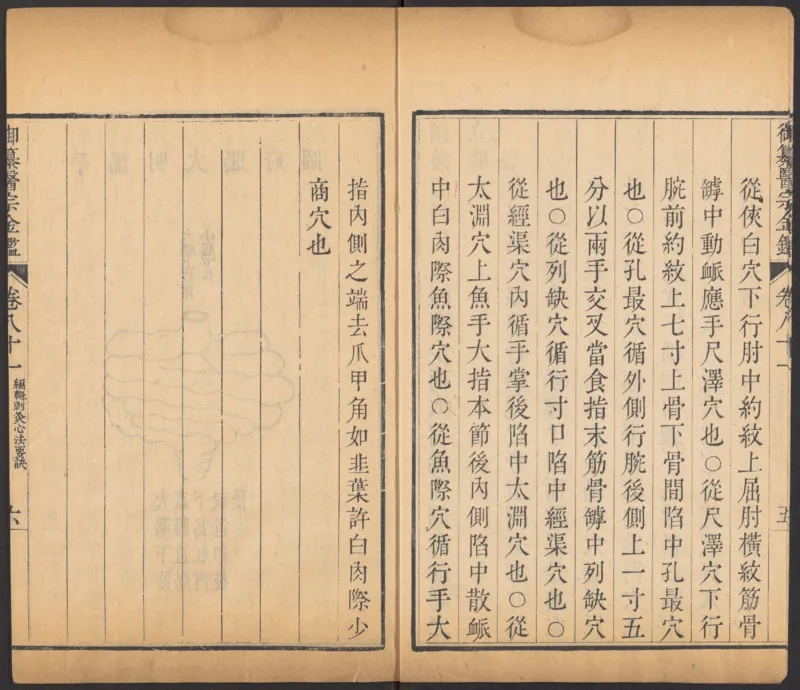 御纂醫宗金鑑 卷八十一 五
從俠白穴下行肘中約紋上屈肘橫紋筋骨
罅中動䘑應手尺澤穴也○從尺澤穴下行
腕前約紋上七寸上骨下骨間陷中孔最穴
也○從孔最穴循外側行腕後側上一寸五
分以兩手交叉當食指末筋骨罅中列缺穴
也○從列缺穴循行寸口陷中經渠穴也○
從經渠穴內循手掌後陷中太淵穴也○從
太淵穴上魚手大指本節後內側陷中散䘑
中白肉際魚際穴也○從魚際穴循行手大
指內側之端去爪甲角如韭葉許白肉際少
商穴也
御纂醫宗金鑑 卷八十一 編輯刺灸心法要訣 六